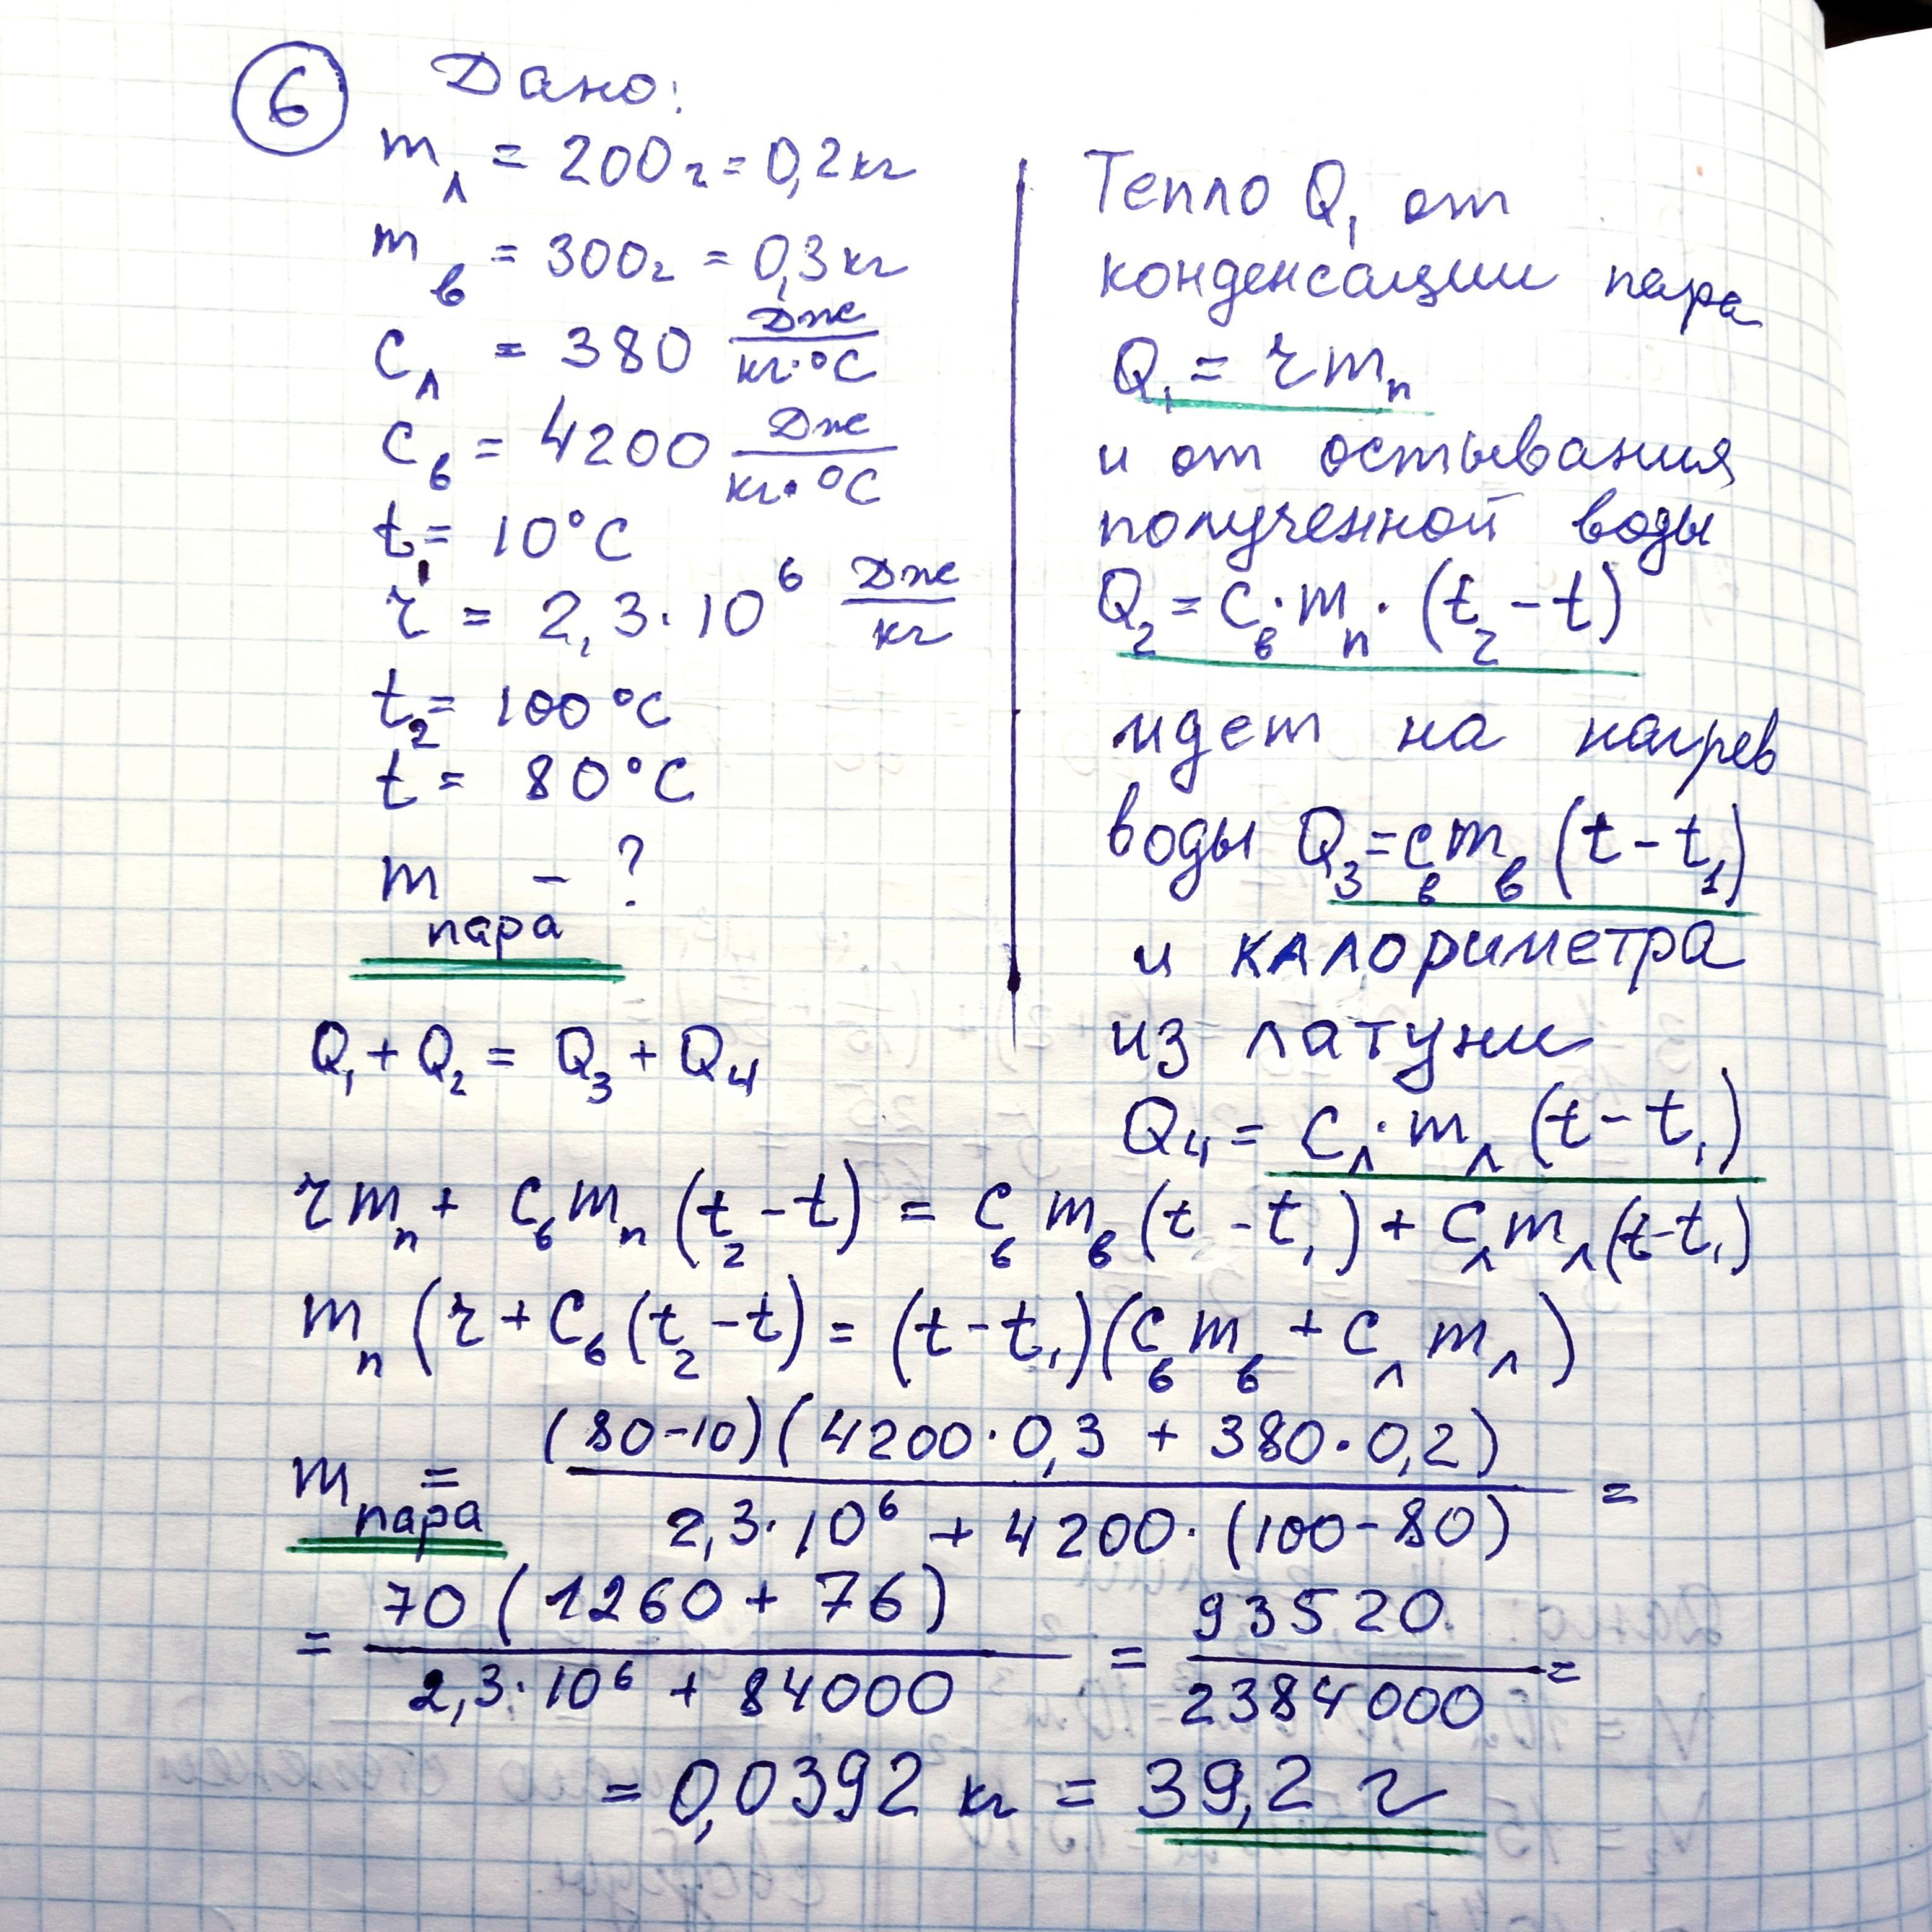 6 Дано:
m_л = 200 г = 0,2 кг
m_в = 300 г = 0,3 кг
c_л = 380 Дж/(кг·°C)
c_в = 4200 Дж/(кг·°C)
t₁ = 10°C
r = 2,3·10⁶ Дж/кг
t₂ = 100°C
t = 80°C
m_пара - ?
Тепло Q₁ от
конденсации пара
Q₁ = r m_п
и от остывания
полученной воды
Q₂ = c_в·m_п·(t₂ - t)
идет на нагрев
воды Q₃ = c_в m_в (t - t₁)
и калориметра
из латуни
Q₄ = c_л·m_л (t - t₁)
Q₁ + Q₂ = Q₃ + Q₄
r m_п + c_в m_п (t₂ - t) = c_в m_в (t - t₁) + c_л m_л (t - t₁)
m_п (r + c_в (t₂ - t) = (t - t₁)(c_в m_в + c_л m_л)
m_пара = (80-10)(4200·0,3 + 380·0,2) / 2,3·10⁶ + 4200·(100-80) =
= 70 (1260 + 76) / 2,3·10⁶ + 84000 = 93520 / 2384000 =
= 0,0392 кг = 39,2 г